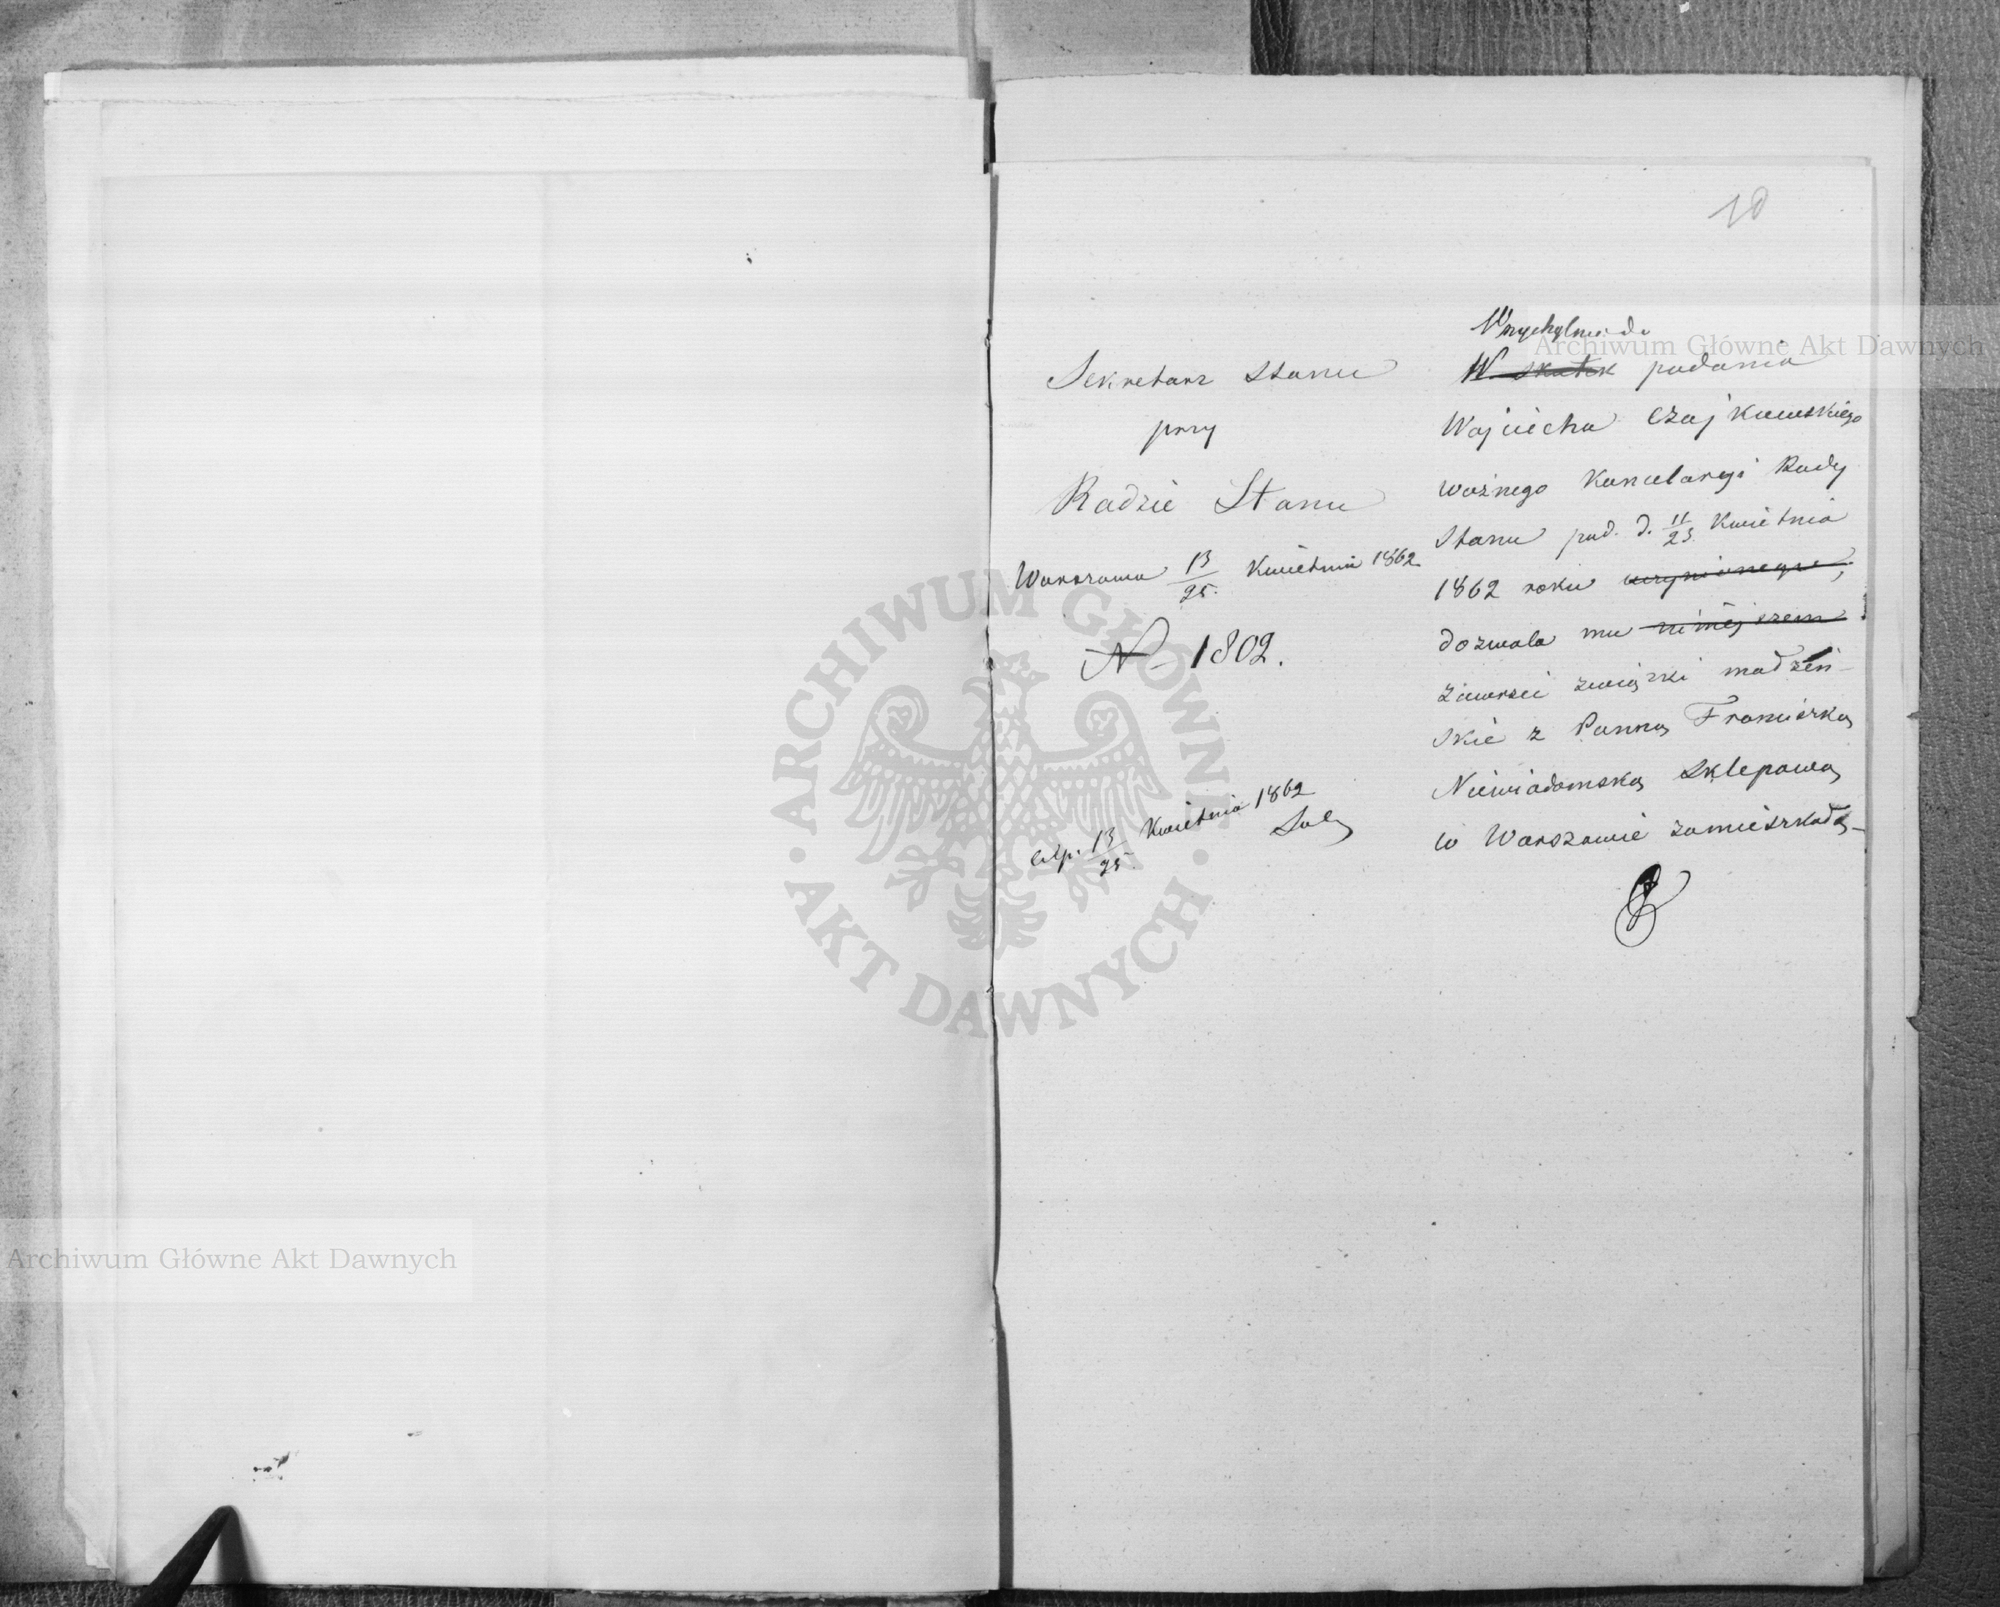 10
Sekretarz Stanu
przy
Radzie Stanu
Warszawa 13/25. Kwietnia 1862.
N 1802.
exp. 13/25. Kwietnia 1862
Przychylnie do
W skutek podania
Wojciecha Czajkowskiego
woźnego Kancelaryi Rady
Stanu pod. d. 11/23. Kwietnia
1862 roku uczynionego,
dozwala mu niniejszem
zawrzeć związki małżeń-
skie z Panną Franciszką
Niewiadomską sklepową
w Warszawie zamieszkałą
Archiwum Główne Akt Dawnych
ARCHIWUM GŁÓWNE AKT DAWNYCH
Archiwum Główne Akt Dawnych